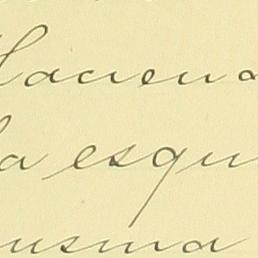 Haciend
la esqui
usma